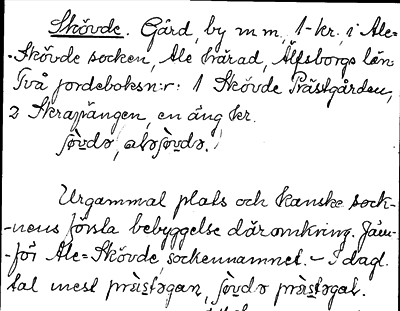 Skövde. Gård, by m m, 1-kr, i Ale-
-Skövde socken, Ale härad, Älfsborgs län
Två jordeboksn:r: 1 Skövde Prästgården,
2 Skrapängen, en äng kr.
Urgammal plats och kanske sock-
-nens första bebyggelse däromkring. Jäm-
-för Ale-Skövde, sockennamnet. – I dagl.
tal mest